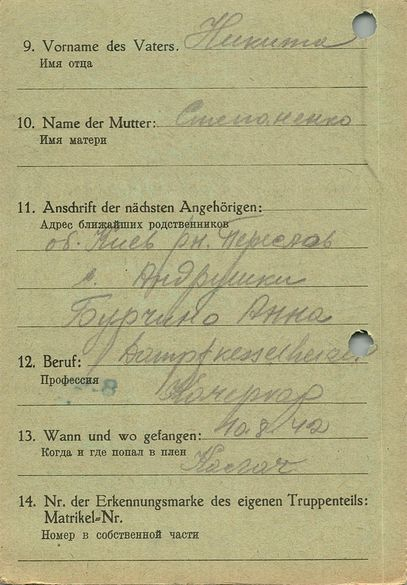 9. Vorname des Vaters. Никита
Имя отца
10. Name der Mutter: Степаненко
Имя матери
11. Anschrift der nächsten Angehörigen:
Адрес ближайших родственников
об. Киев рн. Переслав
с. Андрушки
Бурчино Анна
12. Beruf: Dampfkesselheizer
Профессия
Кочегар
13. Wann und wo gefangen: 10.8.42
Когда и где попал в плен
14. Nr. der Erkennungsmarke des eigenen Truppenteils:
Matrikel-Nr.
Номер в собственной части